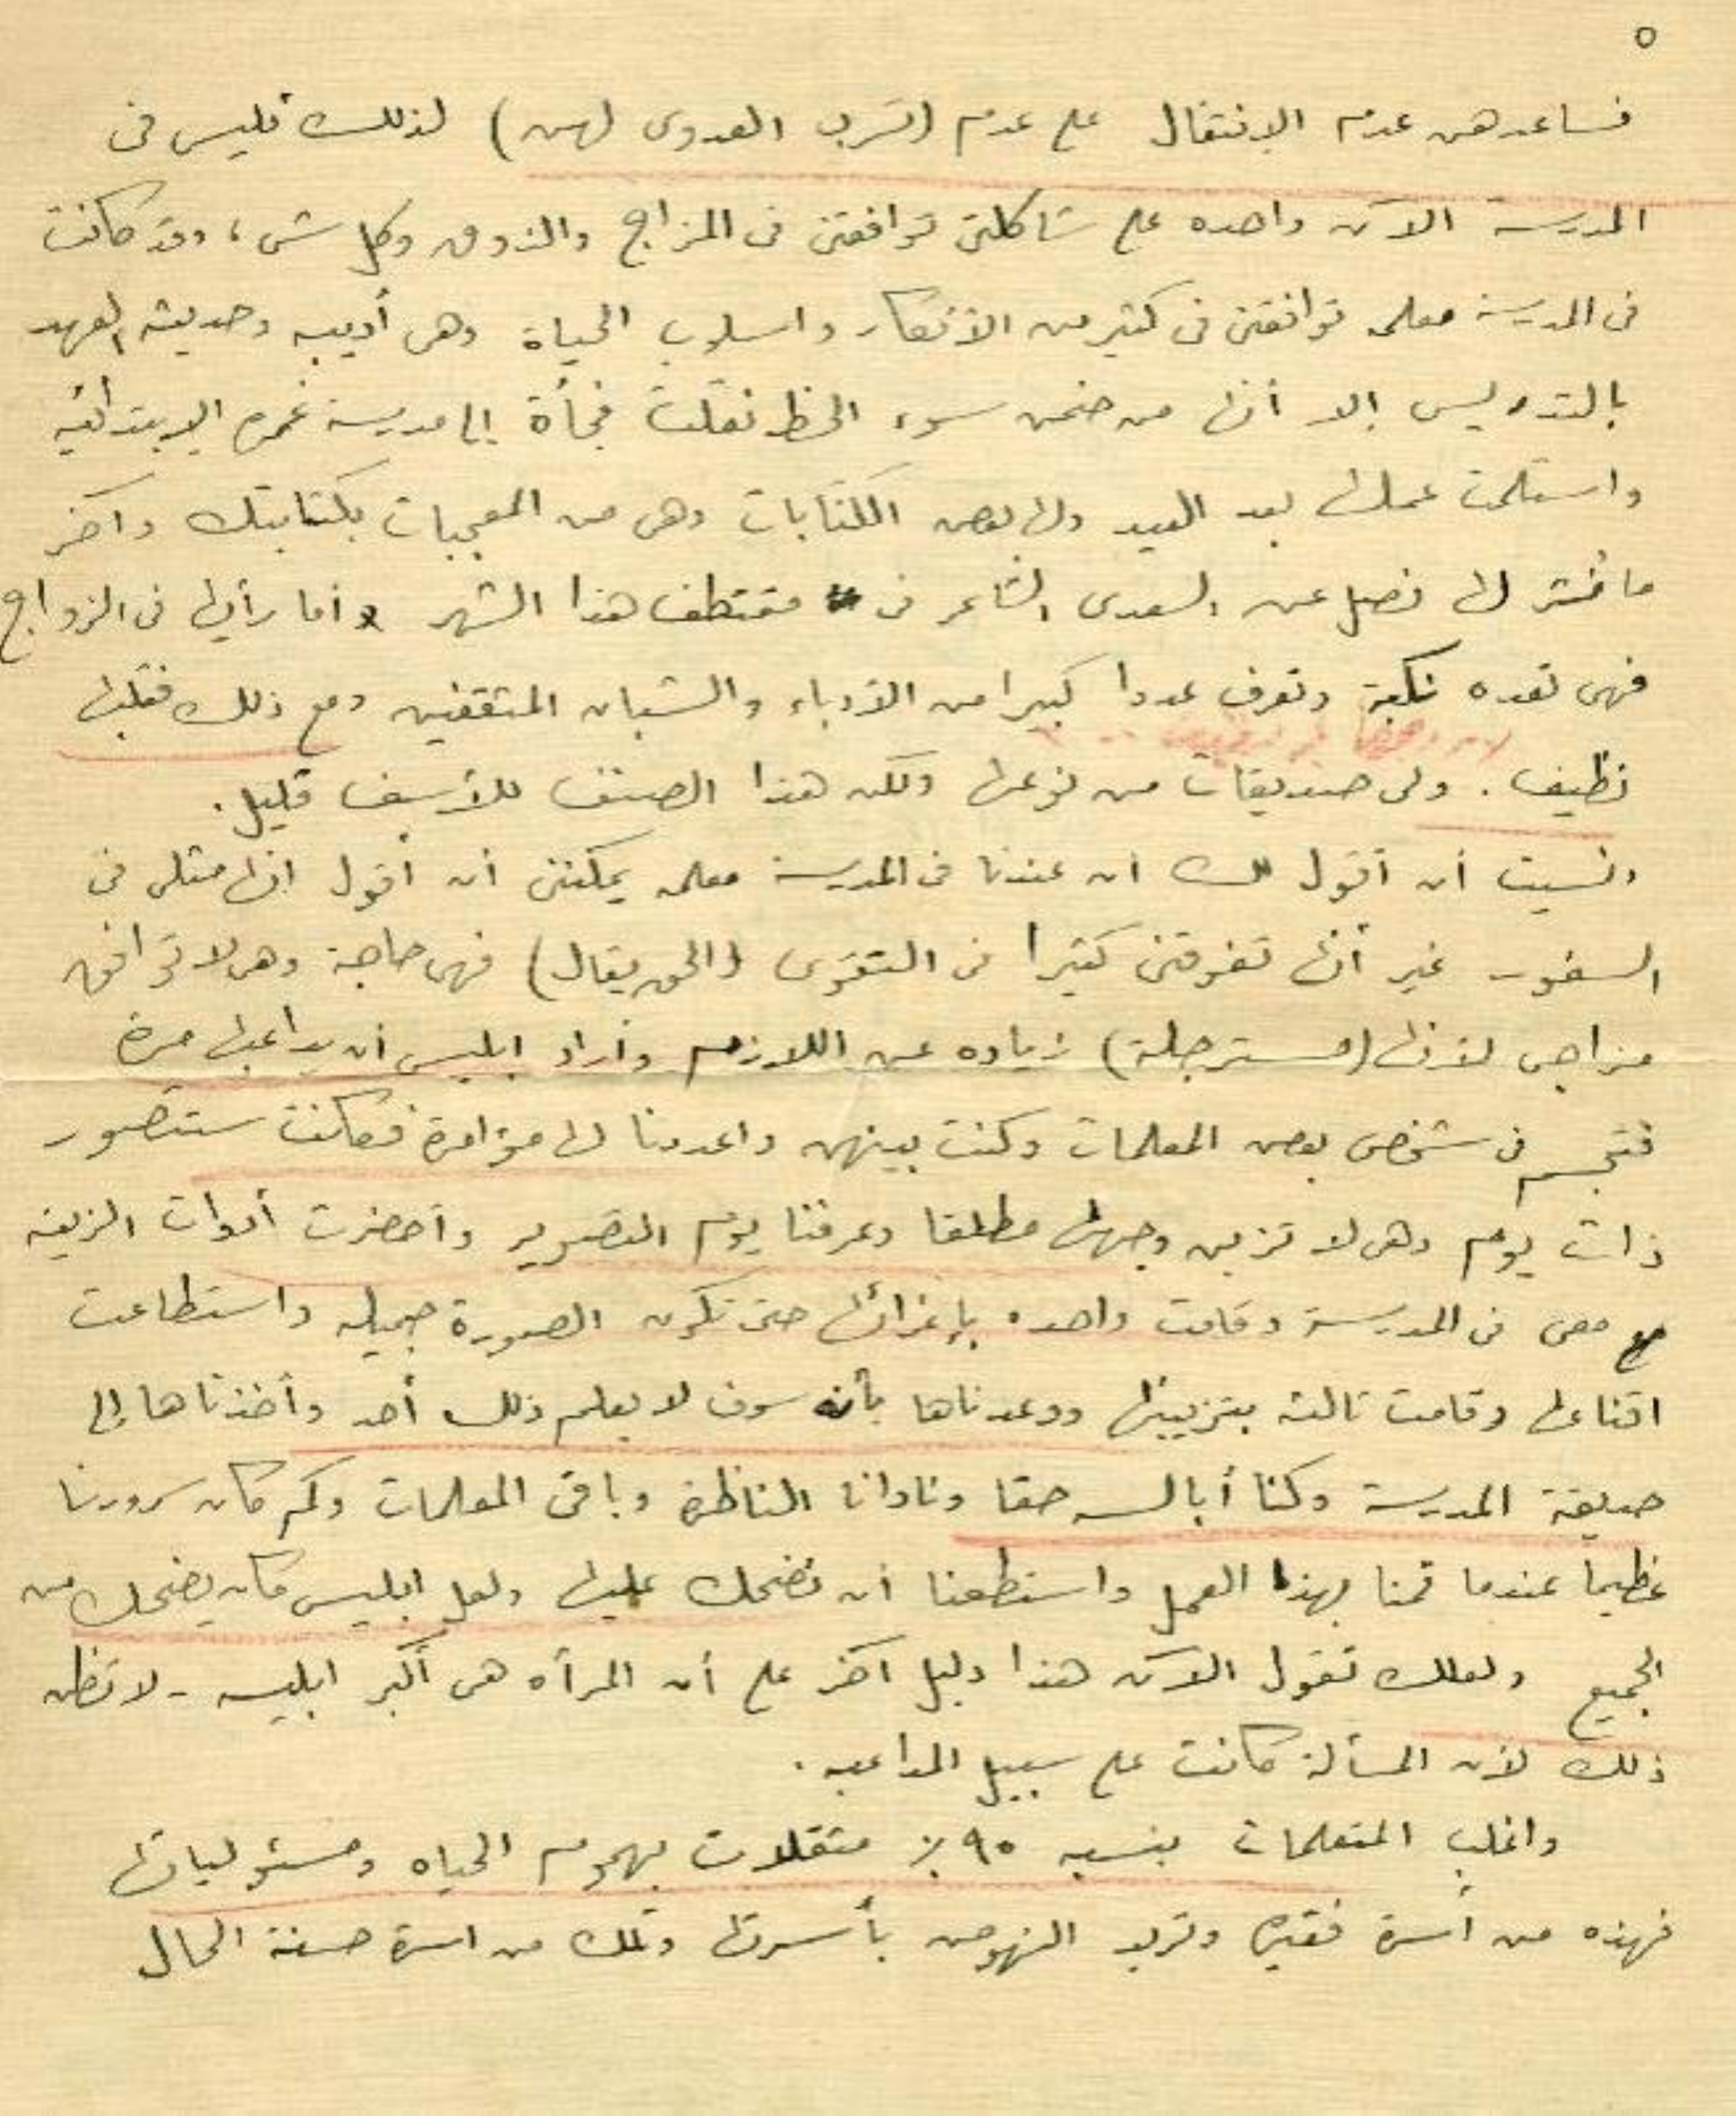 ٥
فساعدهن عدم الانتقال على عدم (تسرب العدوى لهن) لذلك فليس فى
المدرسة الآن واحده على شاكلتى توافقنى فى المزاج والذوق وكل شىء، وقد كانت
فى المدرسة معلمه توافقنى فى كثير من الأفكار واسلوب الحياة وهى أديبه وحديثة العهد
بالتدريس إلا أنها من ضمن سوء الحظ نقلت فجأة إلى مدرسة غمره الابتدائيه
واستلمت عملها بعد العيد ولها بعض الكتابات وهى من المعجبات بكتابتك وآخر
ما نُشر لها فصل عن السعدى الشاعر فى مقتطف هذا الشهر وأما رأيها فى الزواج
فهى تعده نكبة وتعرف عددا كبيرا من الأدباء والشبان المثقفين ومع ذلك فقلبها
نظيف. ولى صديقات من نوعها ولكن هذا الصنف للأسف قليل.
ونسيت أن أقول لك ان عندنا فى المدرسة معلمه يمكننى أن أقول انها مثلى فى
السفور غير أنها تفوقنى كثيرا فى التقوى (والحق يقال) فهى حاجة وهى لا توافق
مزاجى لأنها (مسترجلة) زياده عن اللازم وأراد ابليس أن يداعبها مرة
فتجسم فى شخص بعض المعلمات وكنت بينهن واعددنا لها مؤامرة فكانت ستتصور
ذات يوم وهى لا تزين وجهها مطلقا وعرفنا يوم التصوير وأحضرت أدوات الزينه
معى فى المدرسة وقامت واحده بإغرائها حتى تكون الصورة جميله واستطاعت
اقناعها وقامت ثالثه بتزيينها ووعدناها بأنه سوف لا يعلم ذلك أحد وأخذناها إلى
حديقة المدرسة وكنا أبالسه حقا ونادانا الناظرة وباقى المعلمات وكم كان سرورنا
عظيما عندما قمنا بهذا العمل واستطعنا ان نضحك عليها ولعل ابليس كان يضحك من
الجميع ولعلك تقول الآن هذا دليل آخر على أن المرأه هى أكبر ابليسه - لا تظن
ذلك لأن المسألة كانت على سبيل المداعبه.
واغلب المتعلمات بنسبه ٩٥٪ مثقلات بهموم الحياه ومسئولياتها
فهذه من أسرة فقيره وتريد النهوض بأسرتها وتلك من اسرة حسنة الحال